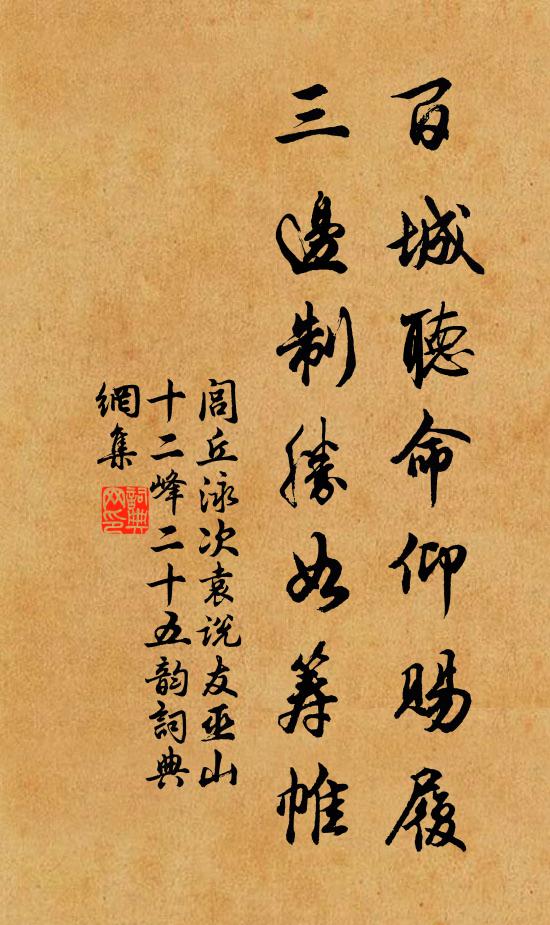 百城聽命仰賜履
三邊制勝如筹帷
閭丘泳次袁说友巫山
十二峰二十五韵詞典
網集
詞典
网印